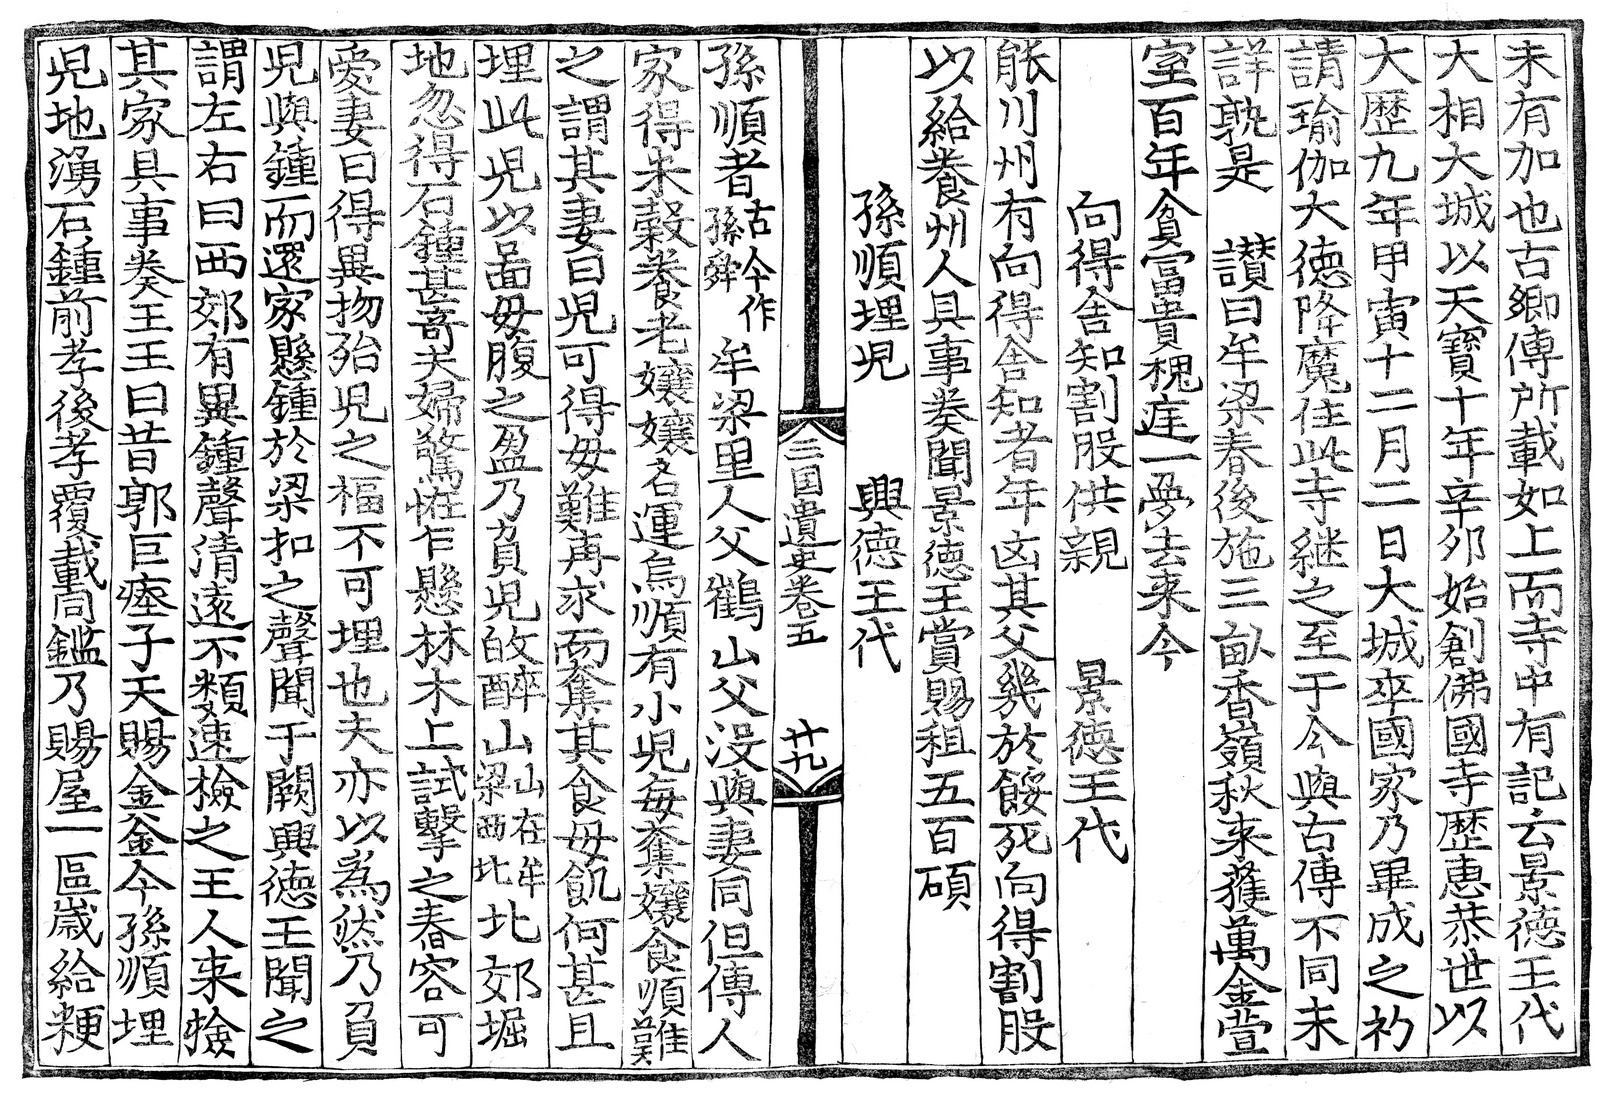 未有加也古鄕傳所載如上而寺中有記云景德王代
大相大城以天寶十年辛卯始創佛國寺歷惠恭世以
大歷九年甲寅十二月二日大城卒國家乃畢成之初
請瑜伽大德降魔住此寺継之至于今與古傳不同未
詳孰是　讚曰牟梁春後施三畝香嶺秋來蒦萬金萱
室百年貧冨貴槐庭一夢去來今
向得舎知割股供親　景德王代
熊川州有向得舎知者年凶其父㡬於餒死向得割股
以給養州人具事奏聞景德王賞賜租五百碩
孫順埋児　興徳王代
三国遺史卷五　廿九
孫順者古今作孫舜牟梁里人父鶴山父没與妻同但傳人
家得米糓養老孃孃名運烏順有小児每奪孃食順難
之謂其妻曰児可得毋難再求而奪其食毋飢何甚且
埋此児以啚毋腹之盈乃負児㱕醉山山在牟梁西北北郊堀
地忽得石鍾甚竒夫婦驚恠乍懸林木上試擊之舂容可
愛妻曰得異物殆児之福不可埋也夫亦以為然乃負
児與鍾而還家懸鍾於梁扣之聲聞于闕興德王聞之
謂左右曰西郊有異鍾聲清遠不類速檢之王人来撿
其家具事奏王王曰昔郭巨瘞子天賜金釡今孫順埋
児地湧石鍾前孝後孝覆載同鑑乃賜屋一區歳給粳